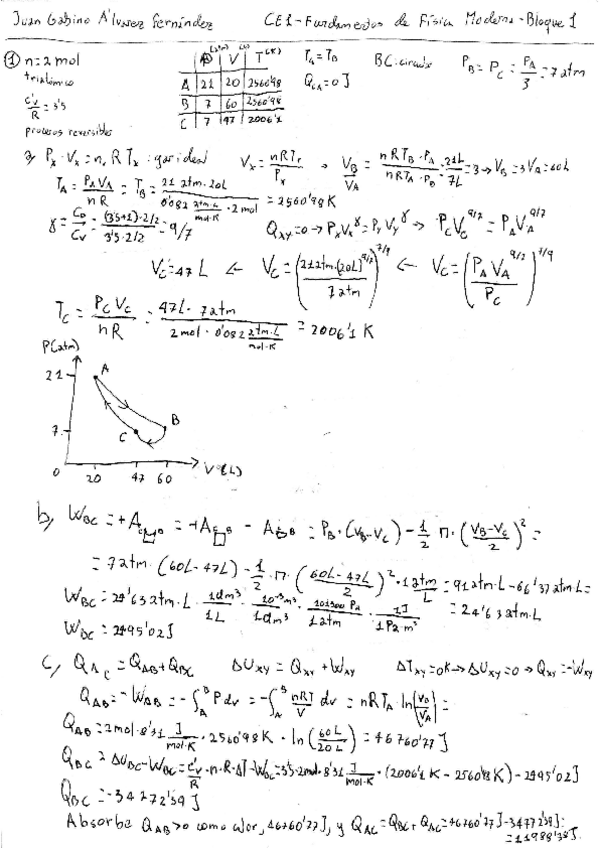 Juan Gabino Álvarez Fernández CE1-Fundamentos de Física Moderna-Bloque 1
① n=2 mol
triatómico
c'v/R = 3'5
procesos reversibles
P(atm) V(L) T(K)
A 21 20 2560'98
B 7 60 2560'98
C 7 47 2006'1
T_A = T_B
Q_CA = 0 J
BC: circular
P_B = P_C = P_A/3 = 7 atm
a) P_x · V_x = n · R T_x : gas ideal V_x = nRT_x/P_x → V_B/V_A = nRT_B · P_A/nRT_A · P_B = 21L/7L = 3 → V_B = 3V_A = 60L
T_A = P_A V_A/nR = T_B = 21 atm · 20L/0'082 atm·L/mol·K · 2 mol = 2560'98 K
γ = C_p/C_v = (3'5+1)·2/2/3'5·2/2 = 9/7 Q_xy = 0 → P_x V_x^γ = P_y V_y^γ → P_C V_C^9/7 = P_A V_A^9/7
V_C = 47 L ← V_C = (21 atm·(20L)^9/7/7 atm)^7/9 ← V_C = (P_A V_A^9/7/P_C)^7/9
T_C = P_C V_C/nR = 47L · 7 atm/2 mol · 0'082 atm·L/mol·K = 2006'1 K
P(atm)
21
A
7
C
B
0 20 47 60 V(L)
b) W_BC = +A = +A - A = P_B · (V_B-V_C) - 1/2 · π · (V_B-V_C/2)² =
= 7 atm · (60L-47L) - 1/2 · π · (60L-47L/2)² · 1 atm/L = 91 atm·L - 66'37 atm·L =
W_BC = 24'63 atm·L · 1dm³/1L · 10⁻³m³/1dm³ · 101300 Pa/1 atm · 1J/1Pa·m³ = 24'63 atm·L
W_BC = 2495'02 J
c) Q_AC = Q_AB + Q_BC ΔU_xy = Q_xy + W_xy ΔT_xy = 0K → ΔU_xy = 0 → Q_xy = -W_xy
Q_AB = -W_AB = -∫_A^B P dv = -∫_A^B nRT/V dv = nRT_A · ln(V_B/V_A) =
Q_AB = 2 mol · 8'31 J/mol·K · 2560'98 K · ln(60L/20L) = 46760'77 J
Q_BC = ΔU_BC - W_BC = c'v/R · n · R · ΔT - W_BC = 3'5 · 2 mol · 8'31 J/mol·K · (2006'1 K - 2560'98 K) - 2495'02 J
Q_BC = -34772'39 J
Absorbe Q_AB > 0 como calor, 46760'77 J, y Q_AC = Q_BC + Q_AB = 46760'77 J - 34772'39 J =
= 11988'38 J.